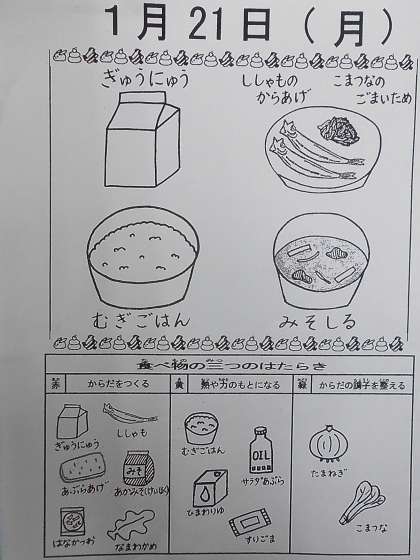 1月21日(月)
ぎゅうにゅう
ししゃもの
からあげ
こまつなの
ごまいため
むぎごはん
みそしる
食べ物の三つのはたらき
赤 からだをつくる
黄 熱や力のもとになる
緑 からだの調子を整える
ぎゅうにゅう
ししゃも
あぶらあげ
みそ
はなかつお
なまわかめ
むぎごはん
OIL
サラダあぶら
ひまわりゆ
すりごま
たまねぎ
こまつな